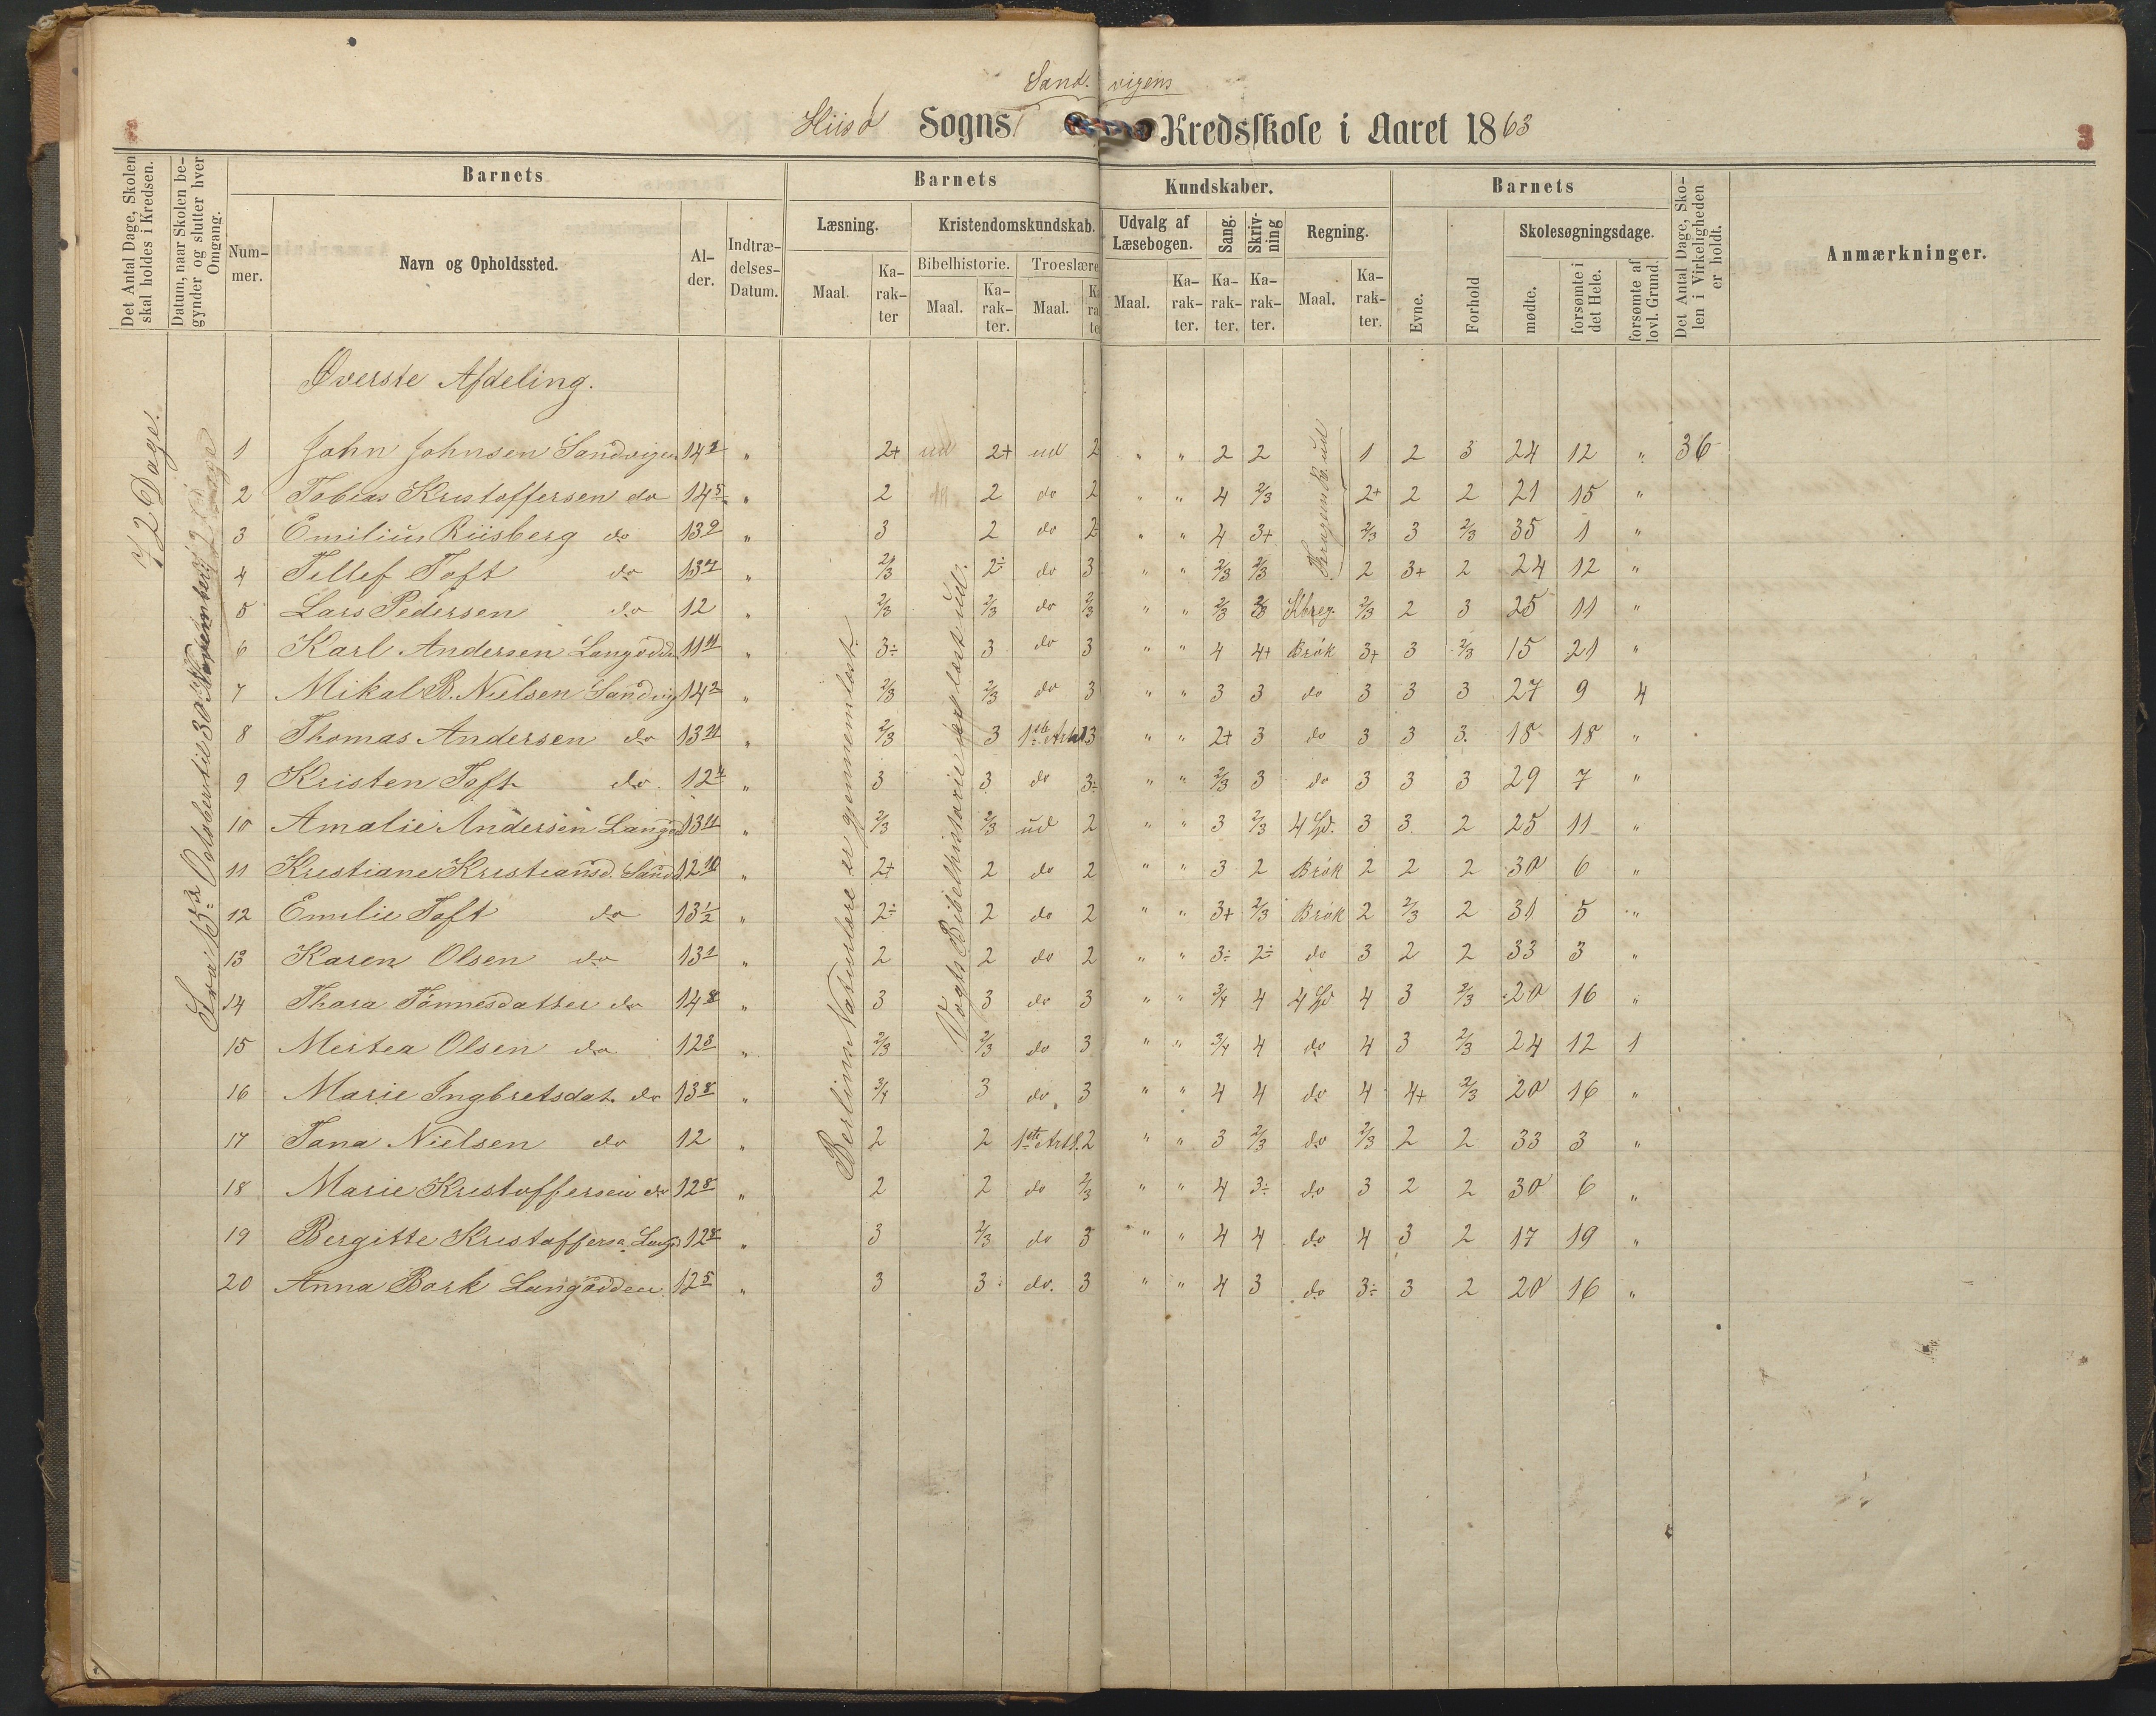 Sandvigens
Hiisø Sogns Kredsskole i Aaret 1863
3
Det Antal Dage, Skolen skal holdes i Kredsen.
Datum, naar Skolen begynder og slutter hver Omgang.
Barnets
Barnets
Kundskaber.
Barnets
Det Antal Dage, Skolen i Virkeligheden er holdt.
Anmærkninger.
Nummer.
Navn og Opholdssted.
Alder.
Indtrædelses-Datum.
Læsning.
Kristendomskundskab.
Udvalg af Læsebogen.
Sang.
Skrivning
Regning.
Evne.
Forhold
Skolesøgningsdage.
Maal.
Karakter
Bibelhistorie.
Troeslære
Maal.
Karakter.
Maal.
Maal.
Karakter.
Karakter.
Karakter.
Maal.
Karakter.
mødte.
forsømte i det Hele.
forsømte af lovl. Grund.
72 Dage.
Fra 13de October til 30 November
Berlins Naturlære er gjennemlæst.
Vogts Bibelhistorie læst ud.
Øverste Afdeling.
1 John Johnsen Sandvigen 14 " 2+ ud 2+ ud 2 " " 2 2 1 2 3 24 12 " 36
2 Tobias Kristoffersen do 14 5 " 2 2 do 2 " " 4 2/3 2+ 2 2 21 15 "
3 Emilius Riisberg do 13 9 " 3 2 do 2 " " 4 3+ 2/3 3 2/3 35 1 "
4 Tellef Toft do 13 7 " 2/3 2÷ do 3 " " 2/3 2/3 2 3+ 2 24 12 "
5 Lars Pedersen do 12 " 2/3 2/3 do 2/3 " " 2/3 2/3 2 3 25 11 "
6 Karl Andersen Langodden 11 11 " 3÷ 3 do 3 " " 4 4+ Brøk 3+ 3 2/3 15 21 "
7 Mikal B. Nielsen Sandvig 14 2 " 2/3 2/3 do 3 " " 3 3 do 3 3 3 27 9 4
8 Thomas Andersen do 13 11 " 2/3 3 1ste Artk 3 " " 2+ 3 do 3 3 3. 18 18 "
9 Kristen Toft do 12 4 " 3 3 do 3÷ " " 2/3 3 do 3 3 3 29 7 "
10 Amalie Andersen Langod 13 11 " 2/3 2/3 ud 2 " " 3 2/3 3 3 2 25 11 "
11 Kristiane Kristiansd. Sand 12 10 " 2+ 2 do 2 " " 3 2 Brøk 2 2 2 30 6 "
12 Emilie Toft do 13 1/2 " 2÷ 2 do 2 " " 3+ 2/3 Brøk 2 2/3 2 31 5 "
13 Karen Olsen do 13 1 " 2 2 do 2 " " 3÷ 2÷ do 3 2 2 33 3 "
14 Thara Tønnesdatter do 14 8 " 3 3 do 3 " " 3/4 4 4 3 2/3 20 16 "
15 Mertea Olsen do 12 3 " 2/3 2/3 do 3 " " 3/4 4 do 4 3 2/3 24 12 1
16 Marie Ingbretsdat. do 13 8 " 3/4 3 do 3 " " 4 4 do 4 4+ 2/3 20 16 "
17 Tana Nielsen do 12 " 2 2 1ste Artk. 2 " " 3 2/3 do 2/3 2 2 33 3 "
18 Marie Kristoffersen do 12 8 " 2 2 do 2/3 " " 4 3÷ do 3 2 2 30 6 "
19 Bergitte Kristoffersn Langd 12 " 3 2/3 do 3 " " 4 4 do 4 3 2 17 19 "
20 Anna Bork Langodden 12 5 " 3 3 do. 3 " " 4 3 do 3÷ 3 2 20 16 "